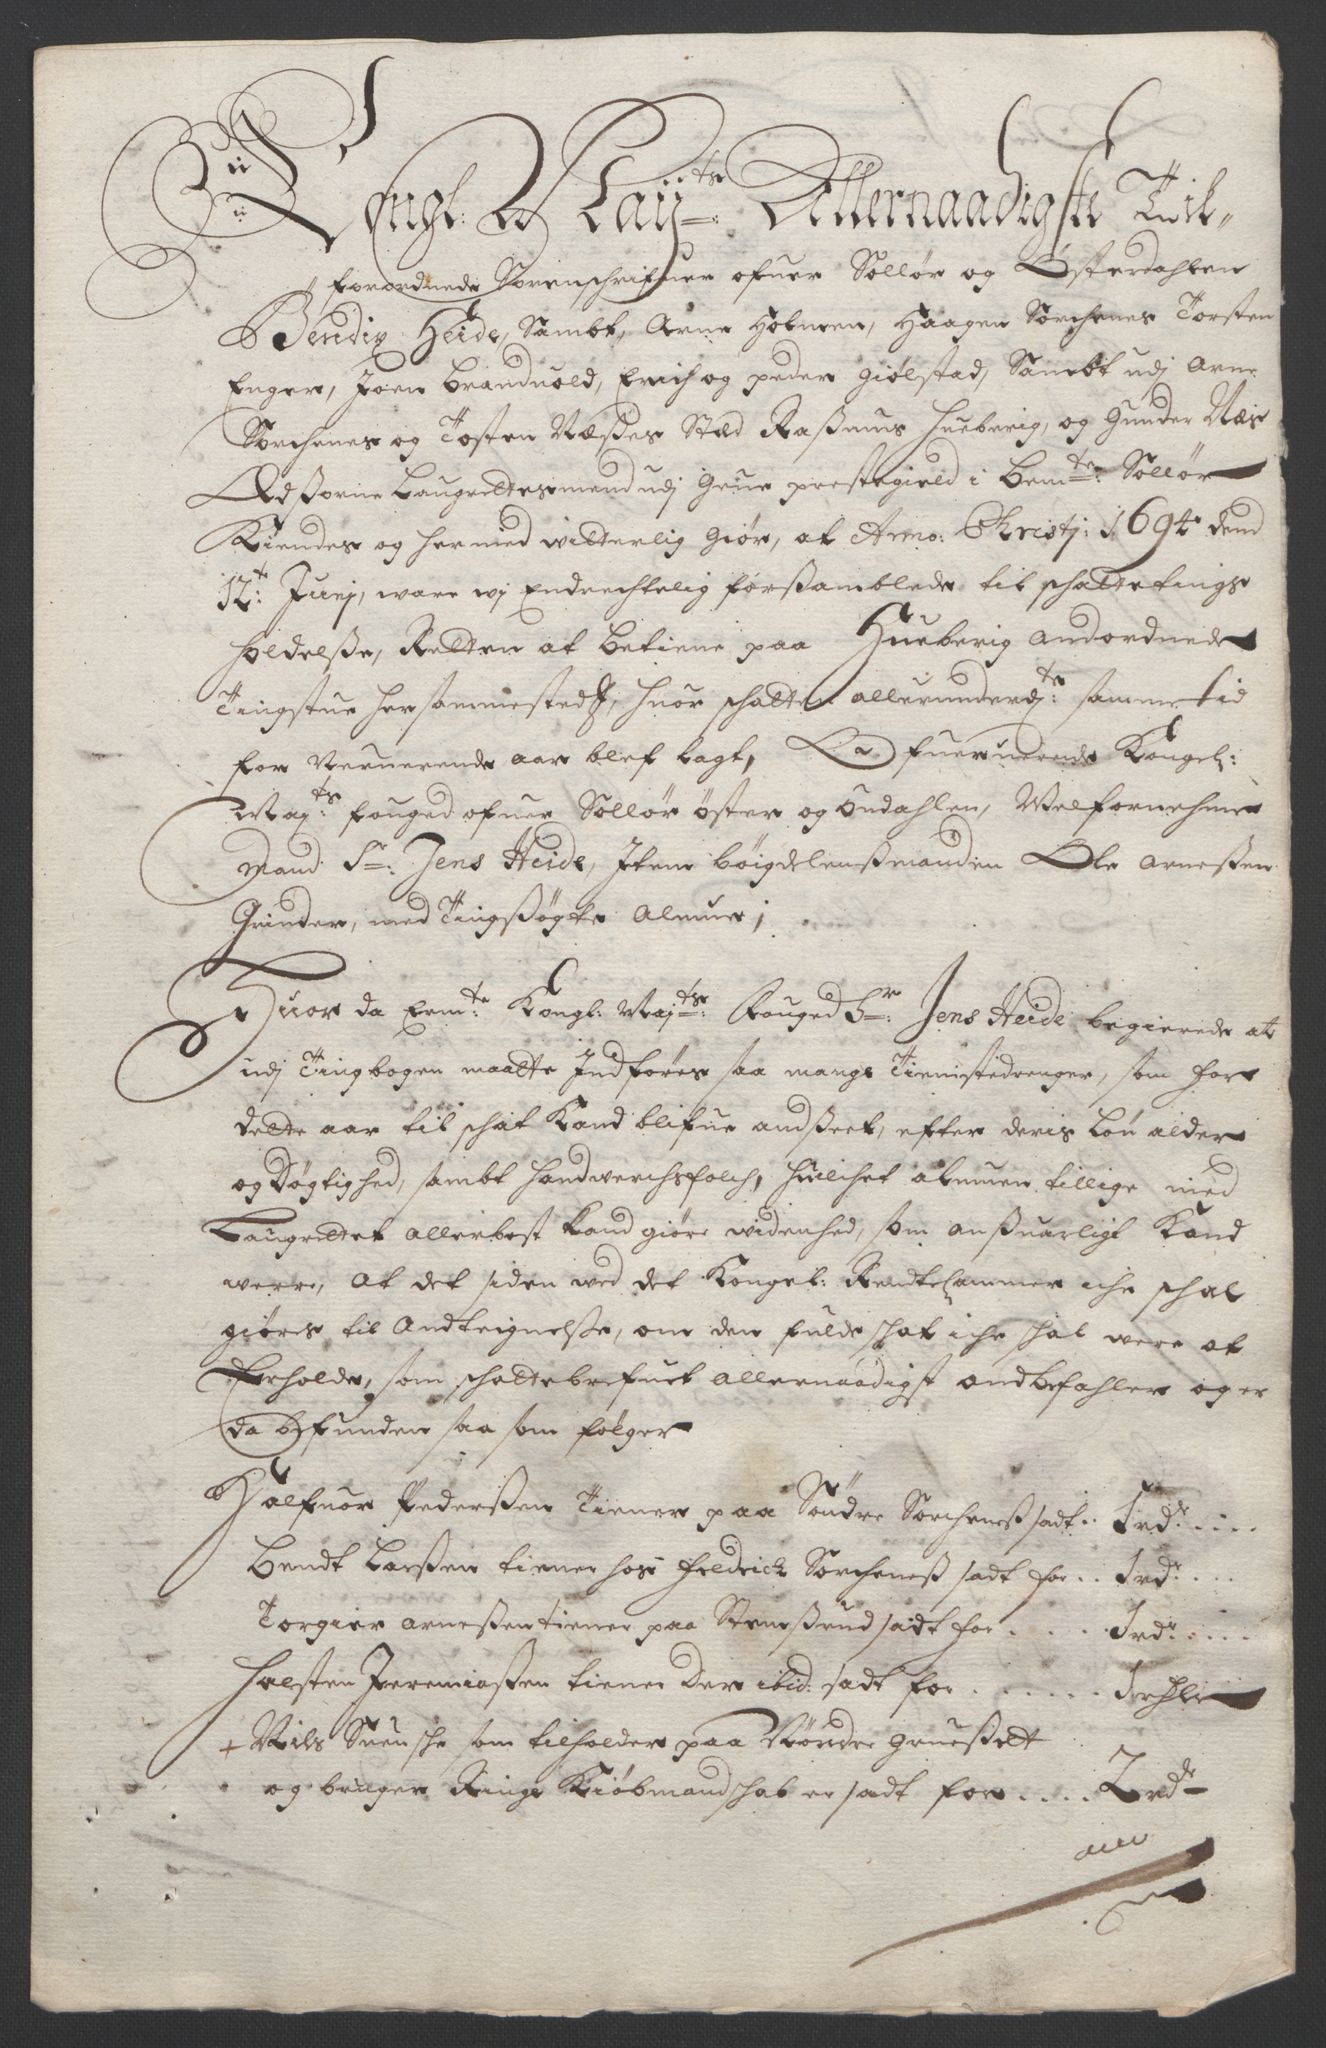 Kongl: Maij:ts Allernaadigste Til-
forordnede Sorenschrifuer ofuer Sollør og Østerdahlen
Bendix Heide, Sambt, Arne Hobueen, Haagen Sorchenes Torsten
Enger, Joen Branduold, Erich og peder Giølstad, Sambt udj Arne
Sorchenes og Tosten Næsses Sted Rassmus Hueberig, og Gunder Næs
Edssorne Laugrettesmend udj Grue prestegield i bem:te Sollør
Kiendes og hermed witterlig Giør, at Anno: Christj: 1694 dend
12t: Junj, ware wj Endrechtelig forssamblede til schattetings
holdelsse, Retten at betiene paa Hueberig andordnede
Tingstue hersammested, huor schatten allerunderd:te samme tid
for neruerende aar blef lagt, Ofueruerende Kongel:
Maj:ts fouged ofuer Sollør øster og Oudahlen, Welfornehme
Mand Sr: Jens Heide, Item bøigdelenssmanden Ole Arnessen
Grinder, med Tingssøgte Almue;
Huor da Erm:te Kongl: Maj:ts Fouged Sr: Jens Heide begierede at
udj Tingbogen maatte Indføres saa mange Tienistedrenger, som for
dette aar til schat Kand blifue andsseet, efter deris Løn alder
og Døgtighed, sambt handwerchsfolch, huilchet almuen tillige med
Laugrettet allerbest kand giøre widenhed, som anssuarligt Kand
werre, at det siden wed det Kongel: Rendtekammer iche schal
giøres til Andteignelsse, om den fulde schat iche schal were at
Erholde, som schattebrefuet allernaadigst andbefahler og er
da befunden saa som følger
Halfuor Pederssen Tiener paa Søndre Sorcheness sadt .. 1 rdr ....
Bendt Larssen tiener hos Fredrich Sorcheness sadt for .. 1 rdr ....
Torgier Arnessen tiener paa Stenssrud sadt for .... 1 rdr ....
Halsten Jeremiassen tiener Der ibid: sadt for ......
+ Nils Suensche som tilholder paa Nøndre Gruessett
og bruger Ringe Kiøbmandschab er sadt for .... 2 rdr